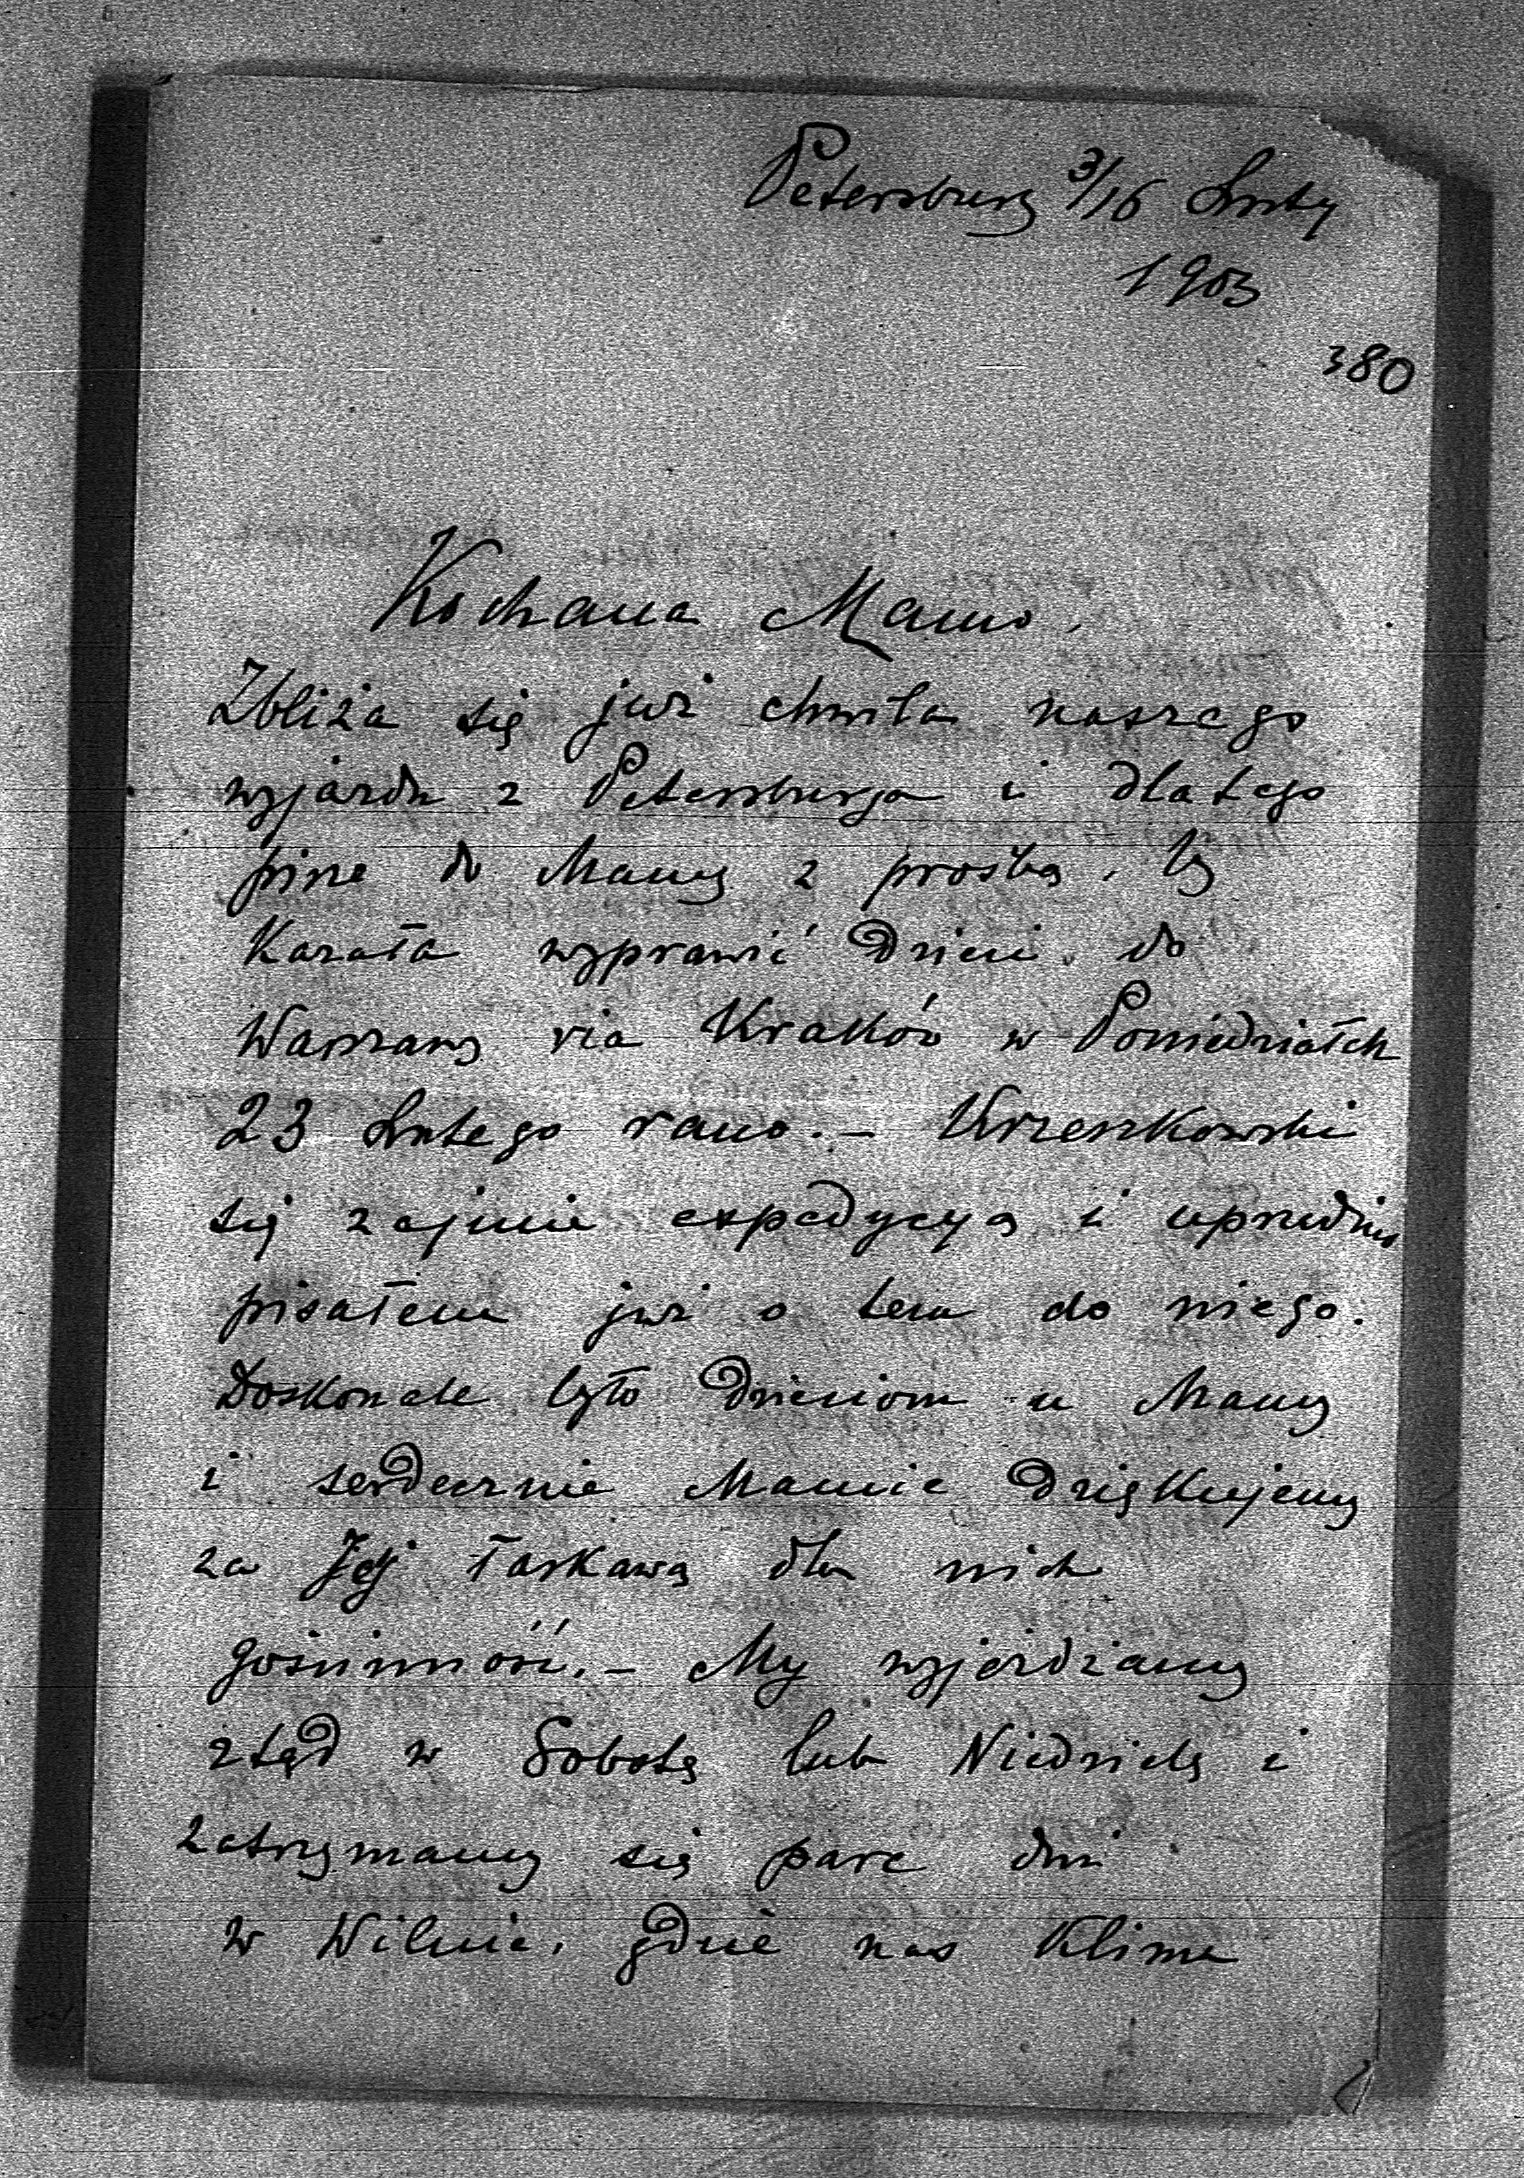 Petersburg 3/16 Luty
1903
380
Kochana Mamo,
Zbliża się już chwila naszego
wyjazdu z Petersburga i dlatego
piszę do Mamy z prośbą, by
Kazała wyprawić Dzieci do
Warszawy via Kraków w Poniedziałek
23 Lutego rano. – Krzeszkowski
się zajmie expedycyą i uprzednio
pisałem już o tem do niego.
Doskonale było Dzieciom u Mamy
i serdecznie Mamie Dziękujemy
za Jej łaskawą dla nich
gościnność. – My wyjeżdżamy
ztąd w Sobotę lub Niedzielę i
zatrzymamy się parę dni
w Wilnie, gdzie nas Klima